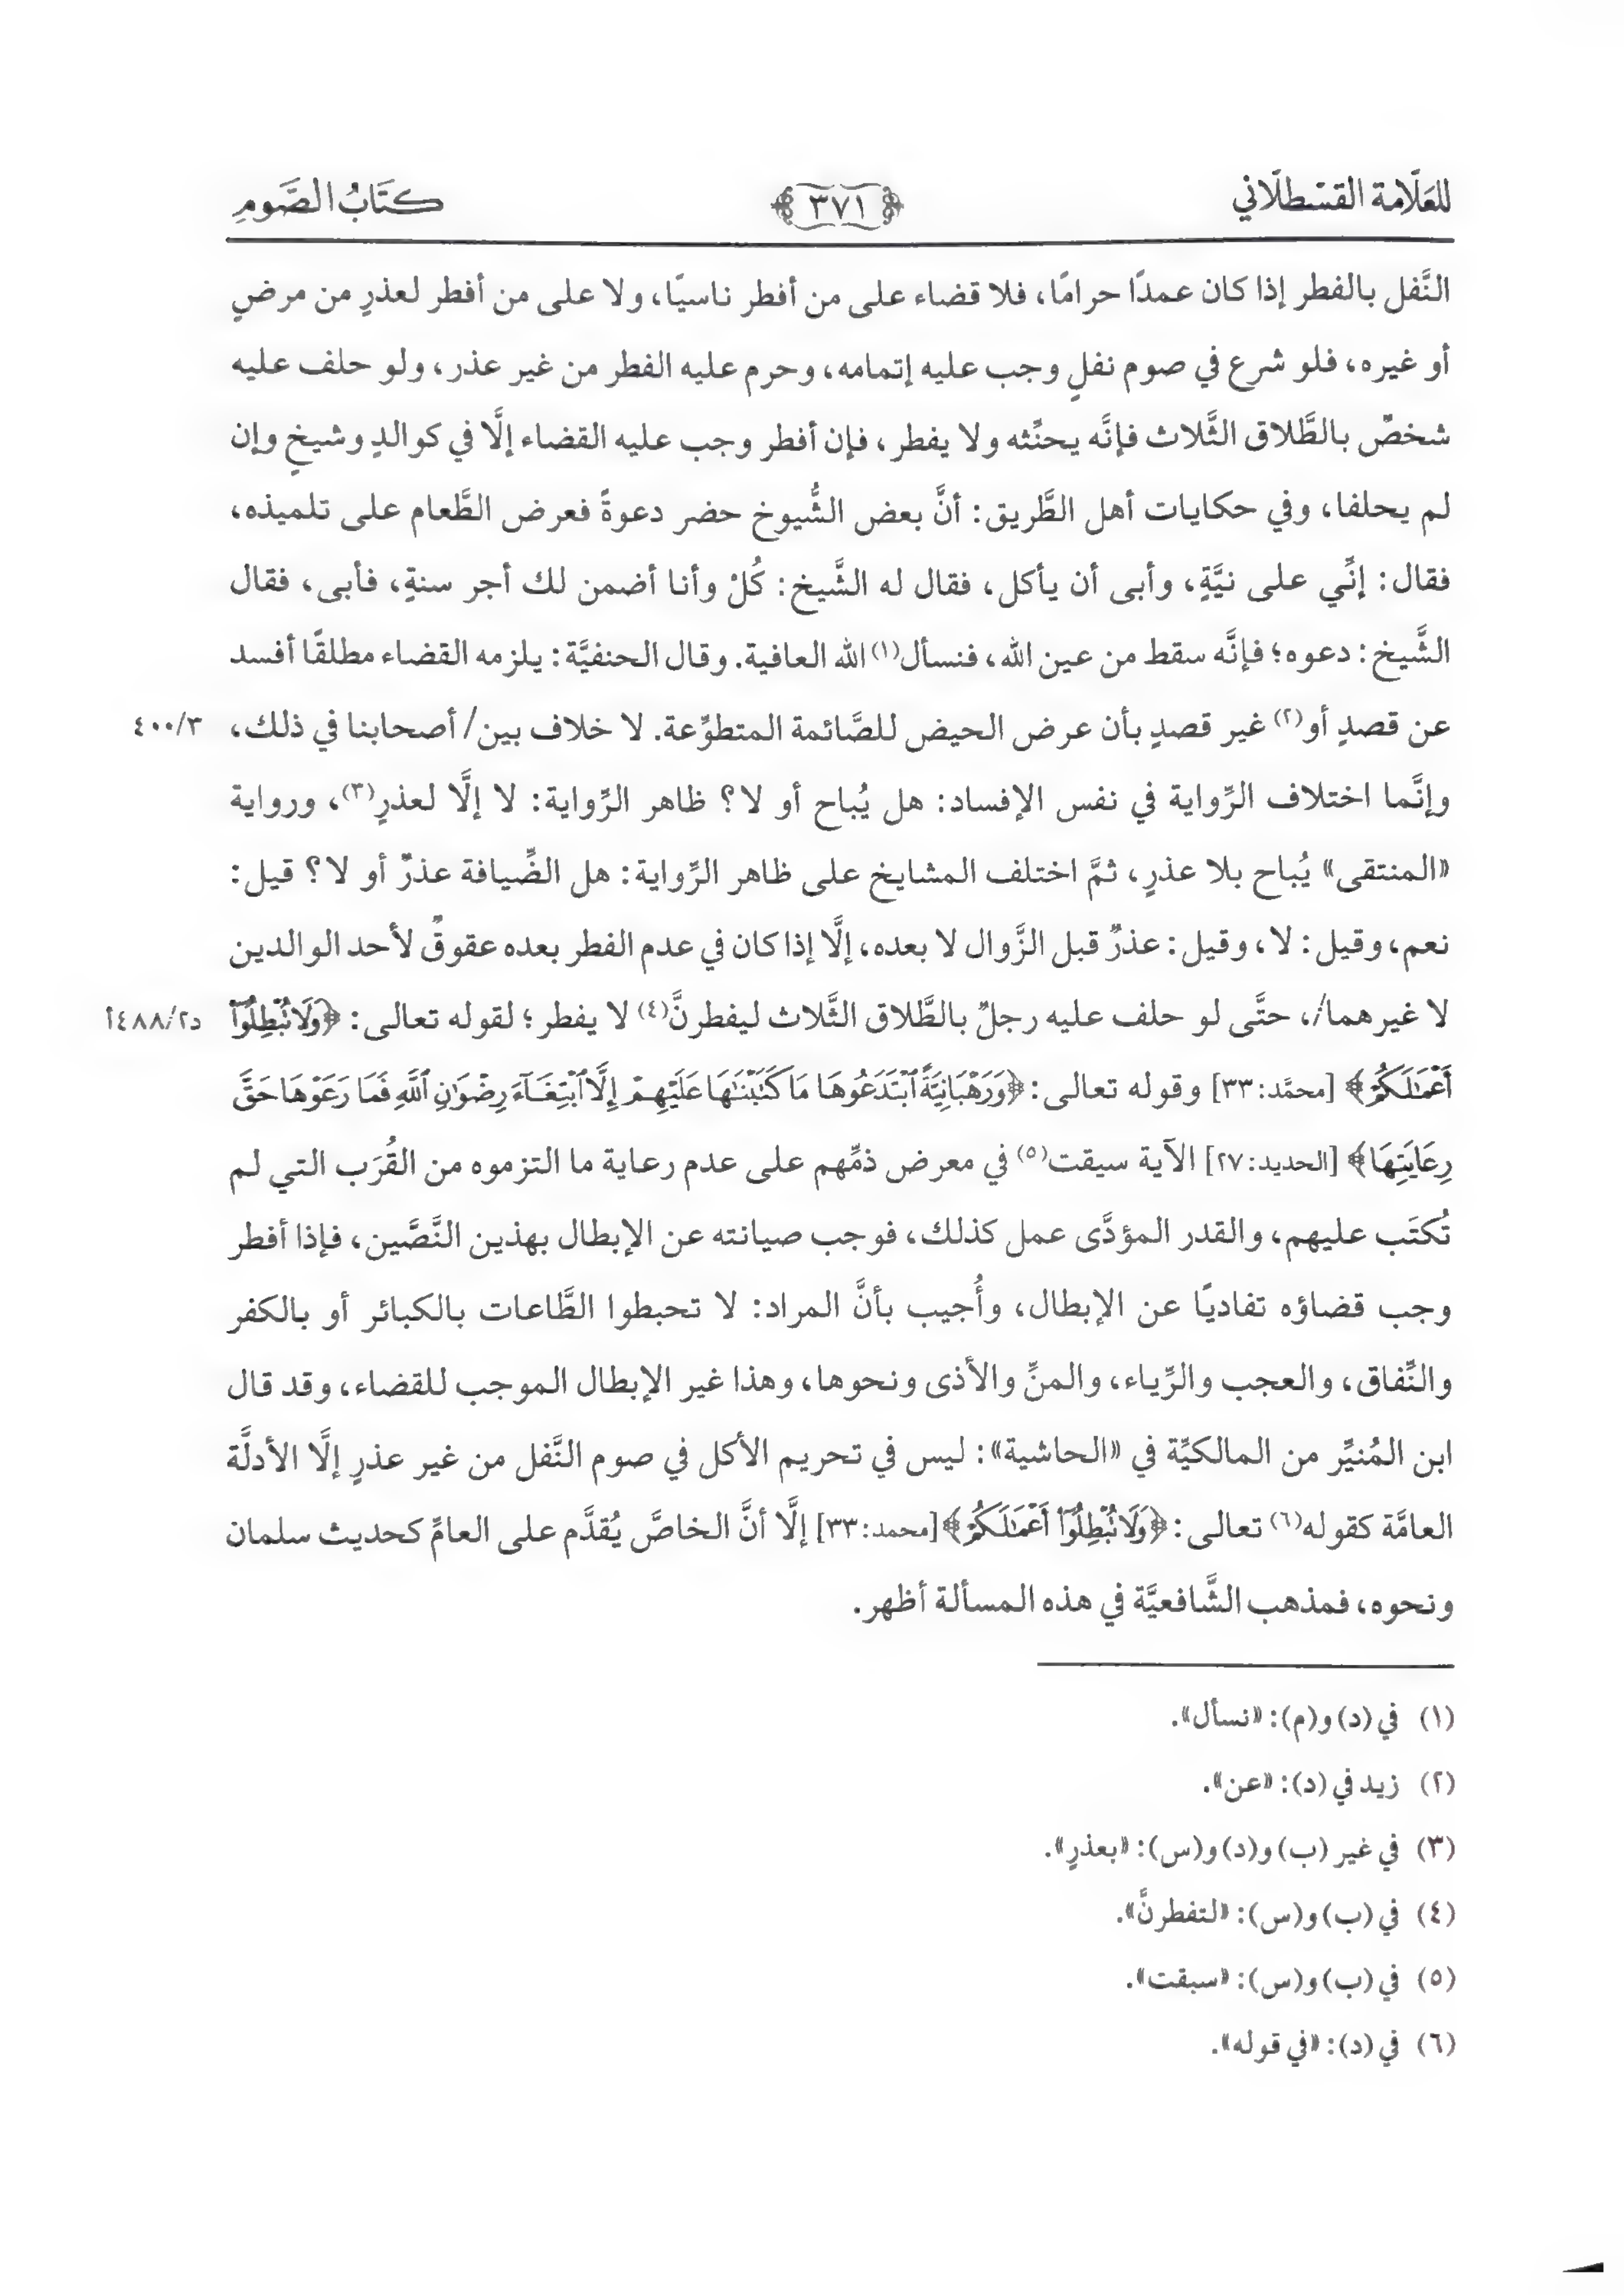 للعَلَّامة القسْطلَّاني
٣٧١
كتَابُ الصَّومِ
النَّفل بالفطر إذا كان عمدًا حرامًا، فلا قضاء على من أفطر ناسيًا، ولا على من أفطر لعذرٍ من مرضٍ
أو غيره، فلو شرع في صوم نفلٍ وجب عليه إتمامه، وحرم عليه الفطر من غير عذر، ولو حلف عليه
شخصٌ بالطَّلاق الثَّلاث فإنَّه يحنِّثه ولا يفطر، فإن أفطر وجب عليه القضاء إلَّا في كوالدٍ وشيخٍ وإن
لم يحلفا، وفي حكايات أهل الطَّريق: أنَّ بعض الشُّيوخ حضر دعوةً فعرض الطَّعام على تلميذه،
فقال: إنِّي على نيَّةٍ، وأبى أن يأكل، فقال له الشَّيخ: كُلْ وأنا أضمن لك أجر سنةٍ، فأبى، فقال
الشَّيخ: دعوه؛ فإنَّه سقط من عين الله، فنسأل(١) الله العافية. وقال الحنفيَّة: يلزمه القضاء مطلقًا أفسد
عن قصدٍ أو(٢) غير قصدٍ بأن عرض الحيض للصَّائمة المتطوِّعة. لا خلاف بين/ أصحابنا في ذلك،
٤٠٠/٣
وإنَّما اختلاف الرِّواية في نفس الإفساد: هل يُباح أو لا؟ ظاهر الرِّواية: لا إلَّا لعذرٍ(٣)، ورواية
«المنتقى» يُباح بلا عذرٍ، ثمَّ اختلف المشايخ على ظاهر الرِّواية: هل الضِّيافة عذرٌ أو لا؟ قيل:
نعم، وقيل: لا، وقيل: عذرٌ قبل الزَّوال لا بعده، إلَّا إذا كان في عدم الفطر بعده عقوقٌ لأحد الوالدين
لا غيرهما/، حتَّى لو حلف عليه رجلٌ بالطَّلاق الثَّلاث ليفطرنَّ(٤) لا يفطر؛ لقوله تعالى: ﴿وَلَا تُبْطِلُوٓا۟
د٤٨٨/٢أ
أَعْمَٰلَكُمْ﴾ [محمَّد: ٣٣] وقوله تعالى: ﴿وَرَهْبَانِيَّةً ٱبْتَدَعُوهَا مَا كَتَبْنَٰهَا عَلَيْهِمْ إِلَّا ٱبْتِغَآءَ رِضْوَٰنِ ٱللَّهِ فَمَا رَعَوْهَا حَقَّ
رِعَايَتِهَا﴾ [الحديد: ٢٧] الآية سيقت(٥) في معرض ذمِّهم على عدم رعاية ما التزموه من القُرَب التي لم
تُكتَب عليهم، والقدر المؤدَّى عمل كذلك، فوجب صيانته عن الإبطال بهذين النَّصَّين، فإذا أفطر
وجب قضاؤه تفاديًا عن الإبطال، وأُجيب بأنَّ المراد: لا تحبطوا الطَّاعات بالكبائر أو بالكفر
والنِّفاق، والعجب والرِّياء، والمنِّ والأذى ونحوها، وهذا غير الإبطال الموجب للقضاء، وقد قال
ابن المُنيِّر من المالكيَّة في «الحاشية»: ليس في تحريم الأكل في صوم النَّفل من غير عذرٍ إلَّا الأدلَّة
العامَّة كقوله(٦) تعالى: ﴿وَلَا تُبْطِلُوٓا۟ أَعْمَٰلَكُمْ﴾ [محمد: ٣٣] إلَّا أنَّ الخاصَّ يُقدَّم على العامِّ كحديث سلمان
ونحوه، فمذهب الشَّافعيَّة في هذه المسألة أظهر.
(١) في (د) و(م): «نسأل».
(٢) زيد في (د): «عن».
(٣) في غير (ب) و(د) و(س): «بعذرٍ».
(٤) في (ب) و(س): «لتفطرنَّ».
(٥) في (ب) و(س): «سبقت».
(٦) في (د): «في قوله».